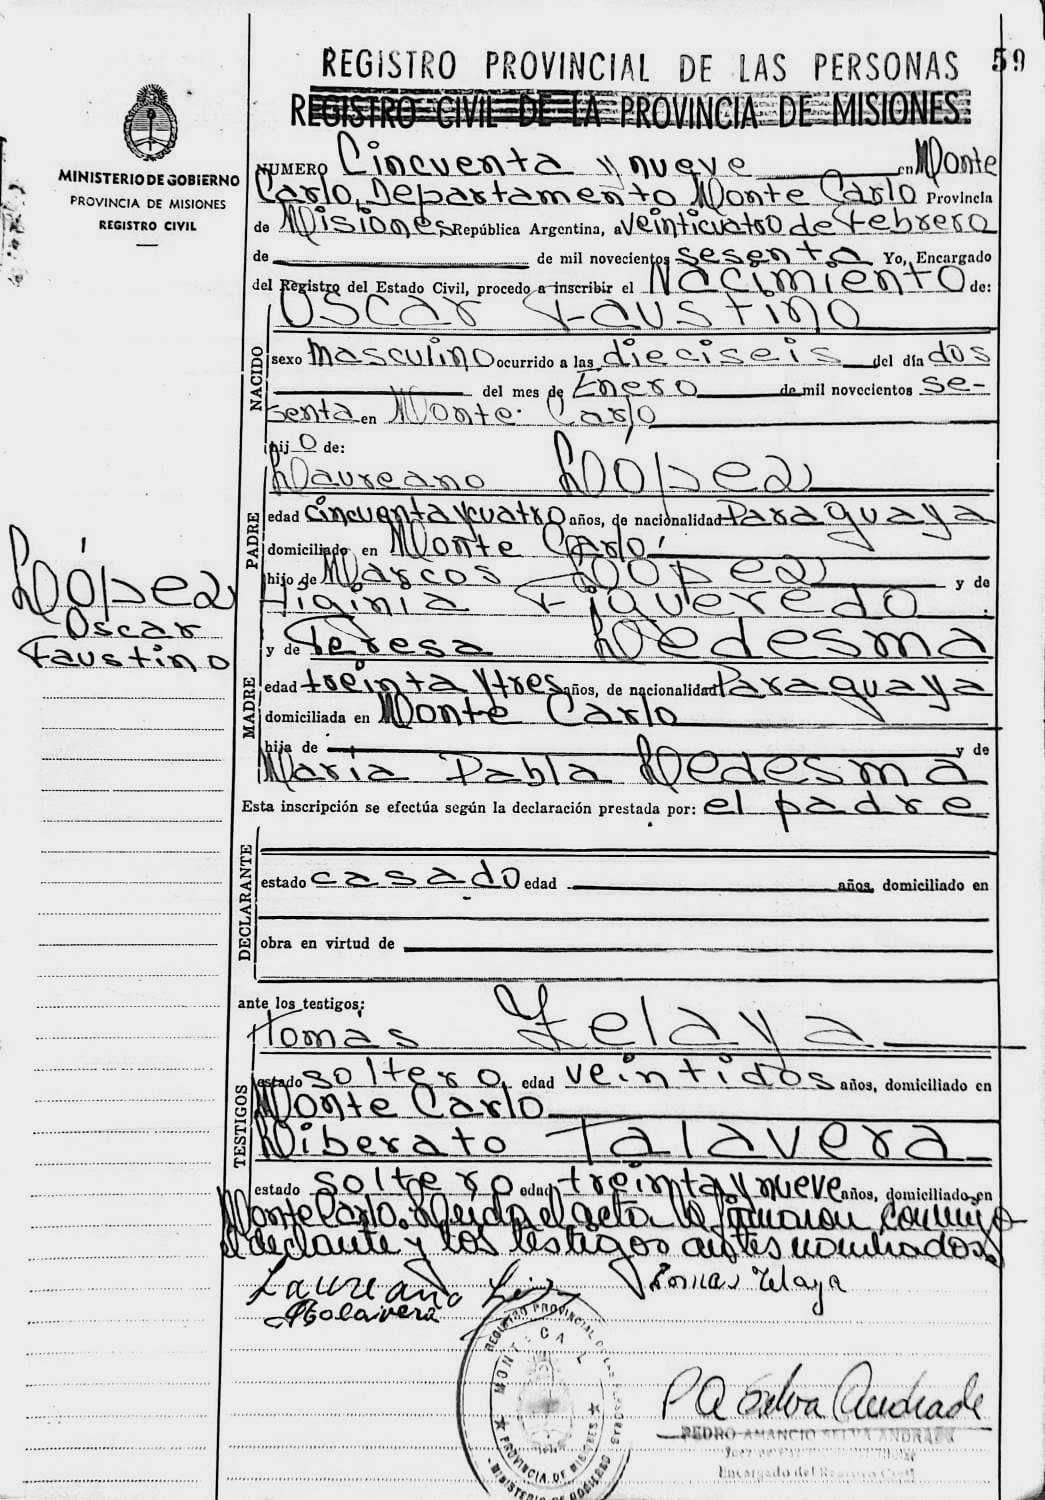 REGISTRO PROVINCIAL DE LAS PERSONAS 59
REGISTRO CIVIL DE LA PROVINCIA DE MISIONES
MINISTERIO DE GOBIERNO
PROVINCIA DE MISIONES
REGISTRO CIVIL
NUMERO Cincuenta y nueve en Monte
Carlo, Departamento Monte Carlo Provincia
de Misiones República Argentina, a veinticuatro de febrero
de de mil novecientos sesenta Yo, Encargado
del Registro del Estado Civil, procedo a inscribir el Nacimiento de:
Oscar Faustino
NACIDO
sexo masculino ocurrido a las dieciseis del día dos
del mes de Enero de mil novecientos se-
senta en Monte Carlo
hij o de:
Laureano López
PADRE
edad cincuenta y cuatro años, de nacionalidad Paraguaya
domiciliado en Monte Carlo
hijo de Marcos López y de
Higinia Figueredo
López
Oscar
Faustino
y de Teresa Ledesma
MADRE
edad treinta y tres años, de nacionalidad Paraguaya
domiciliada en Monte Carlo
hija de y de
María Pabla Ledesma
Esta inscripción se efectúa según la declaración prestada por: el padre
DECLARANTE
estado casado edad años, domiciliado en
obra en virtud de
ante los testigos:
Tomás Zelaya
TESTIGOS
estado soltero, edad veintidos años, domiciliado en
Monte Carlo
Liberato Talavera
estado soltero edad treinta y nueve años, domiciliado en
Monte Carlo. Leída el acta la firmaron conmigo
el declante y los testigos antes nombrados.
Laureano Tomas Zelaya
REGISTRO PROVINCIAL DE LAS PERSONAS
PROVINCIA DE MISIONES
MINISTERIO DE GOBIERNO
P A Selva Andrade
PEDRO AMANCIO SELVA ANDRADE
Encargado del Registro Civil